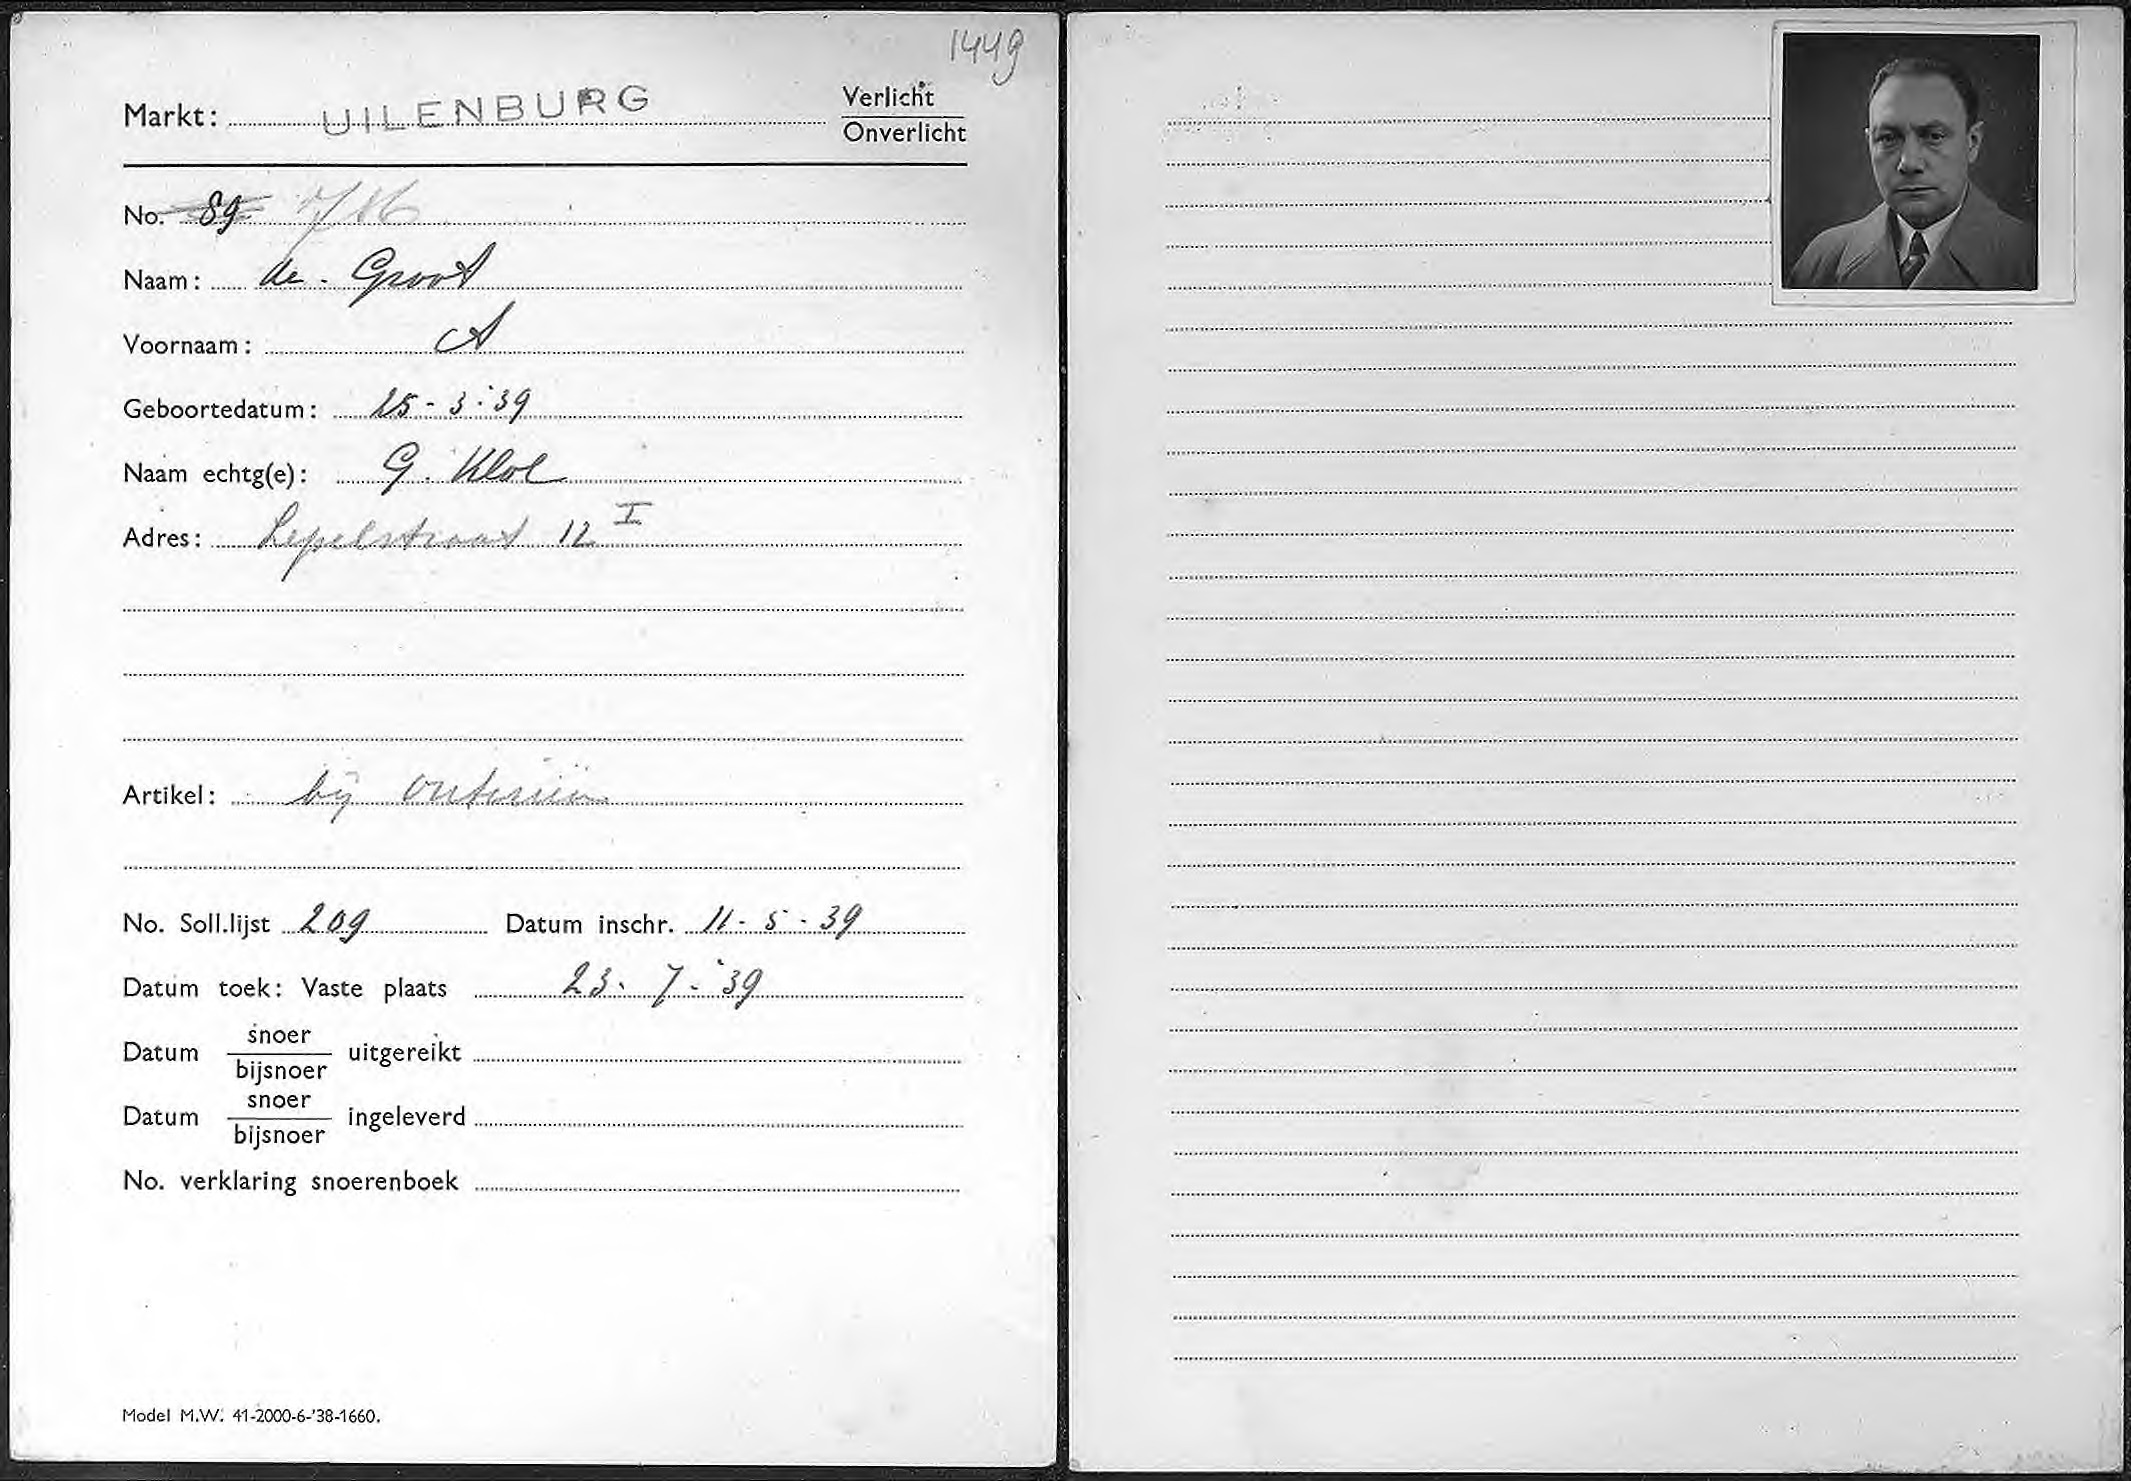 1449
Markt: UILENBURG Verlicht
Onverlicht
No. 89 716
Naam: de Groot
Voornaam: A
Geboortedatum: 25-3-'39
Naam echtg(e): G.
Adres: Lepelstraat 12 I
Artikel: bij
No. Soll.lijst 209 Datum inschr. 11-5-39
Datum toek: Vaste plaats 23-7-'39
Datum snoer
bijsnoer uitgereikt
Datum snoer
bijsnoer ingeleverd
No. verklaring snoerenboek
Model M.W. 41-2000-6-'38-1660.